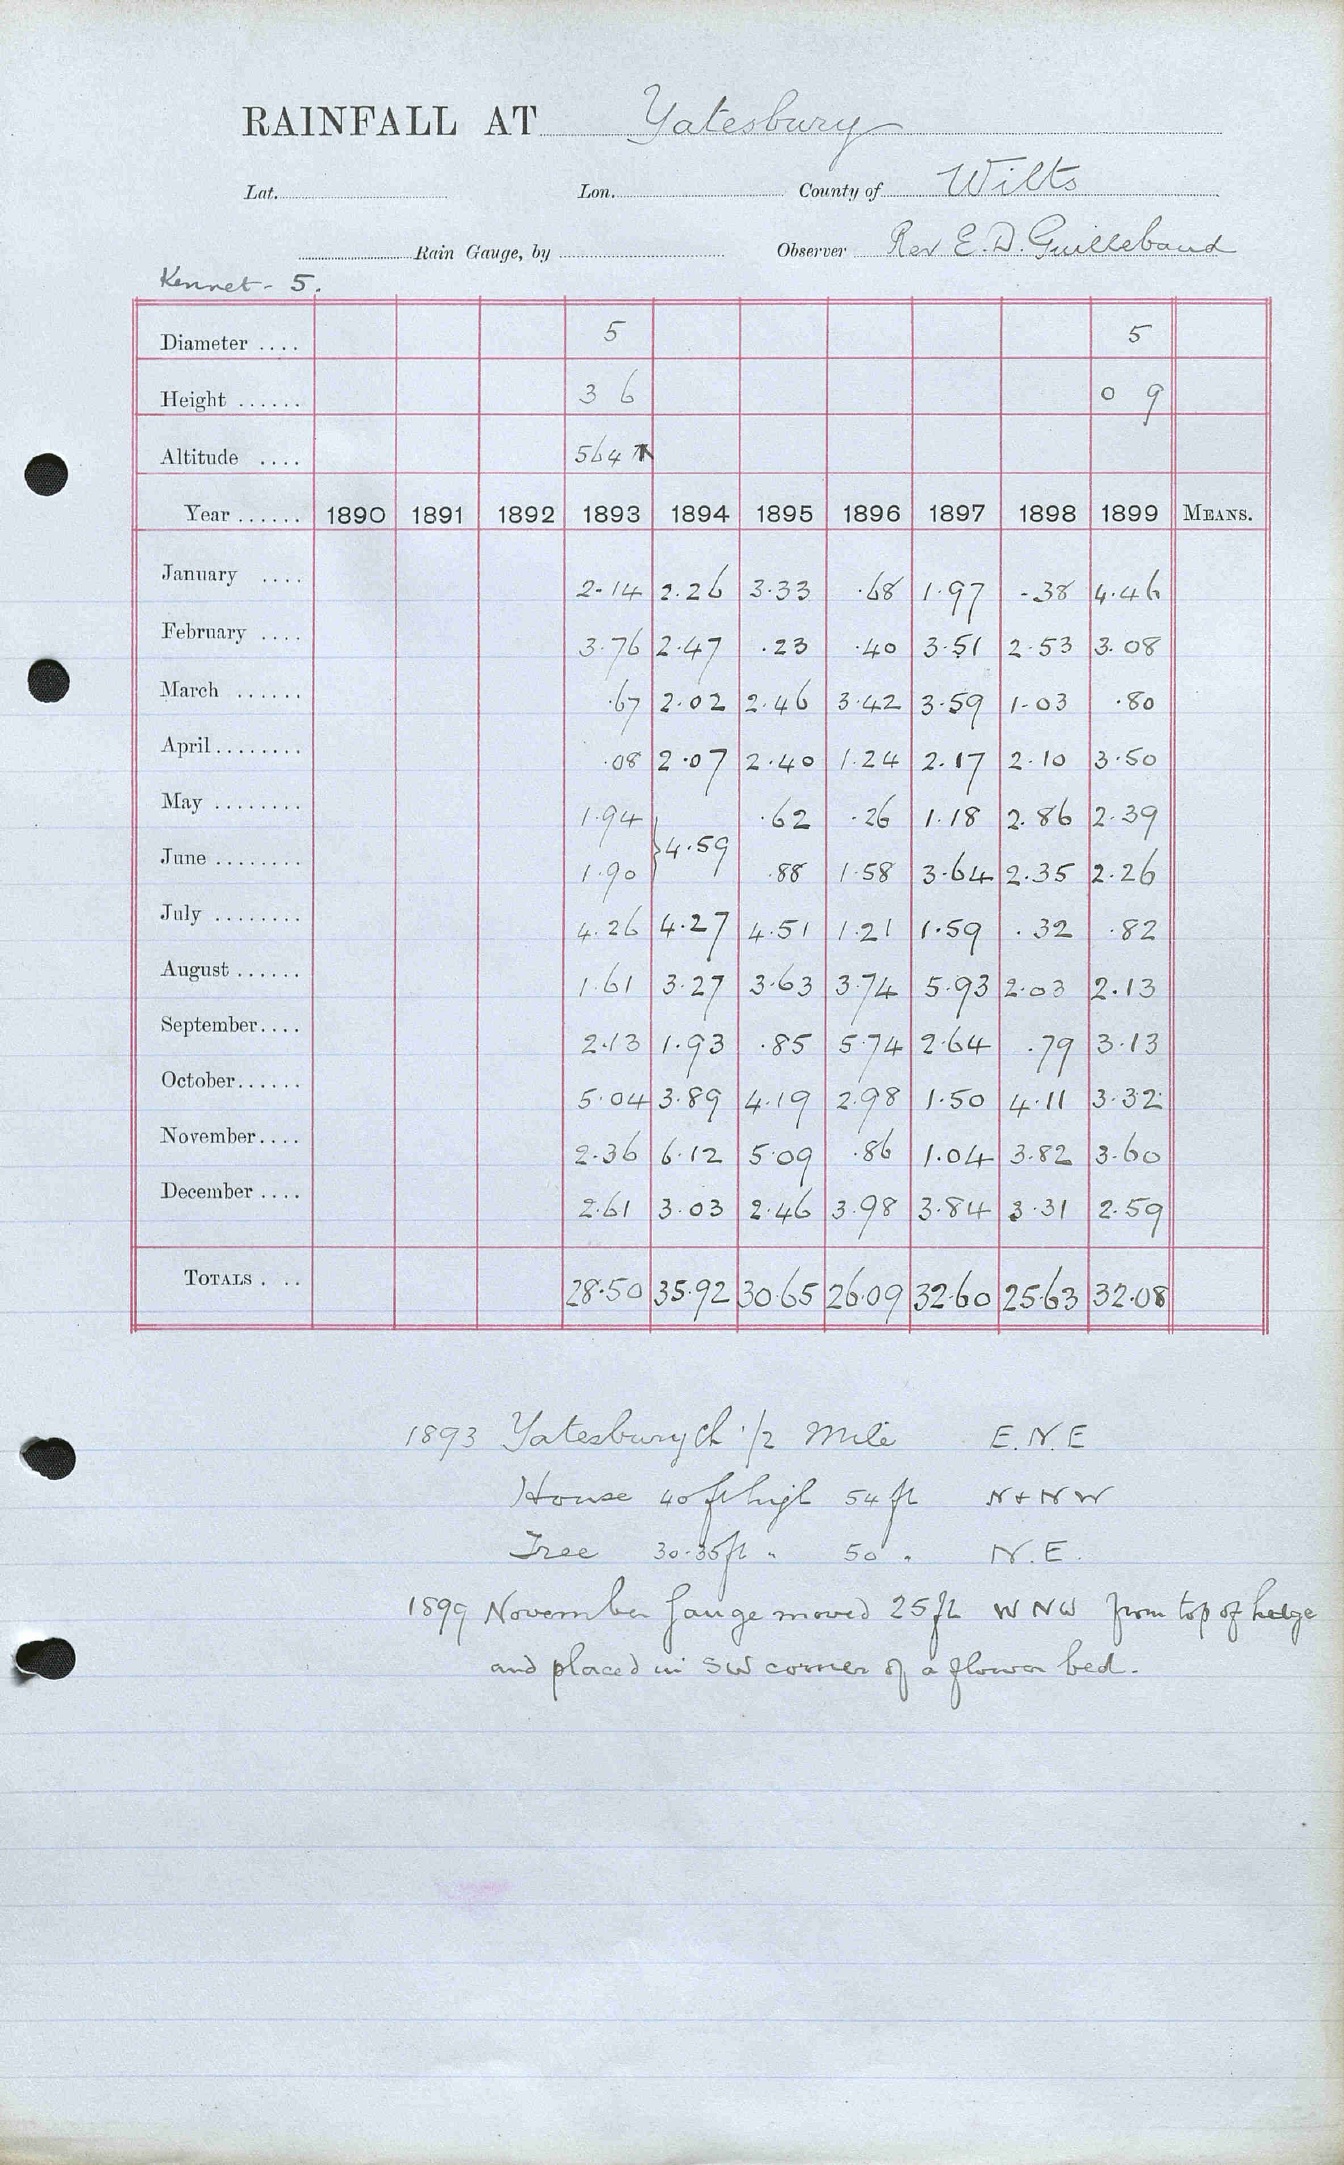 RAINFALL AT Yatesbury
Lat. Lon. County of Wilts
Rain Gauge, by Observer Rev E. D. Guillebaud
Kennet - 5.
Diameter .... 5 5
Height ...... 3 6 0 9
Altitude .... 564
Year ...... 1890 1891 1892 1893 1894 1895 1896 1897 1898 1899 MEANS.
January .... 2.14 2.26 3.33 .68 1.97 .38 4.46
February .... 3.76 2.47 .23 .40 3.51 2.53 3.08
March ...... .67 2.02 2.46 3.42 3.59 1.03 .80
April ........ .08 2.07 2.40 1.24 2.17 2.10 3.50
May ........ 1.94 .62 .26 1.18 2.86 2.39
} 4.59
June ........ 1.90 .88 1.58 3.64 2.35 2.26
July ........ 4.26 4.27 4.51 1.21 1.59 .32 .82
August ...... 1.61 3.27 3.63 3.74 5.93 2.03 2.13
September.... 2.13 1.93 .85 5.74 2.64 .79 3.13
October...... 5.04 3.89 4.19 2.98 1.50 4.11 3.32
November.... 2.36 6.12 5.09 .86 1.04 3.82 3.60
December .... 2.61 3.03 2.46 3.98 3.84 3.31 2.59
TOTALS . .. 28.50 35.92 30.65 26.09 32.60 25.63 32.08
1893 Yatesbury Ch 1/2 Mile E.N.E
House 40 ft high 54 ft N + N W
Tree 30-35 ft " 50 " N.E.
1899 November gauge moved 25 ft W N W from top of hedge
and placed in SW corner of a flower bed.